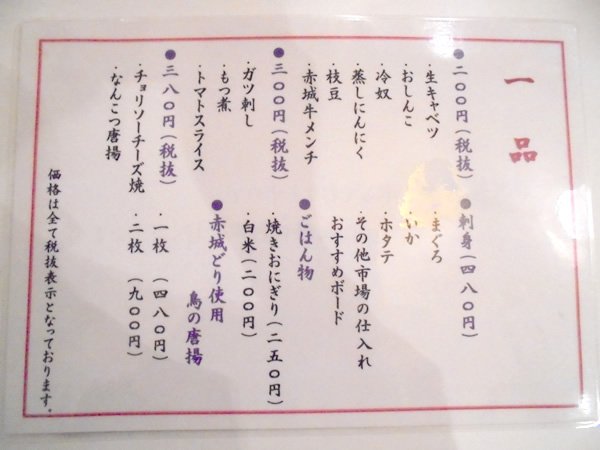 一品
●二〇〇円（税抜）
・生キャベツ
・おしんこ
・冷奴
・蒸しにんにく
・枝豆
・赤城牛メンチ
●三〇〇円（税抜）
・ガツ刺し
・もつ煮
・トマトスライス
●三八〇円（税抜）
・チョリソーチーズ焼
・なんこつ唐揚
●刺身（四八〇円）
・まぐろ
・いか
・ホタテ
・その他市場の仕入れ
おすすめボード
●ごはん物
・焼きおにぎり（二五〇円）
・白米（二〇〇円）
●赤城どり使用
鳥の唐揚
・一枚（四八〇円）
・二枚（九〇〇円）
価格は全て税抜表示となっております。